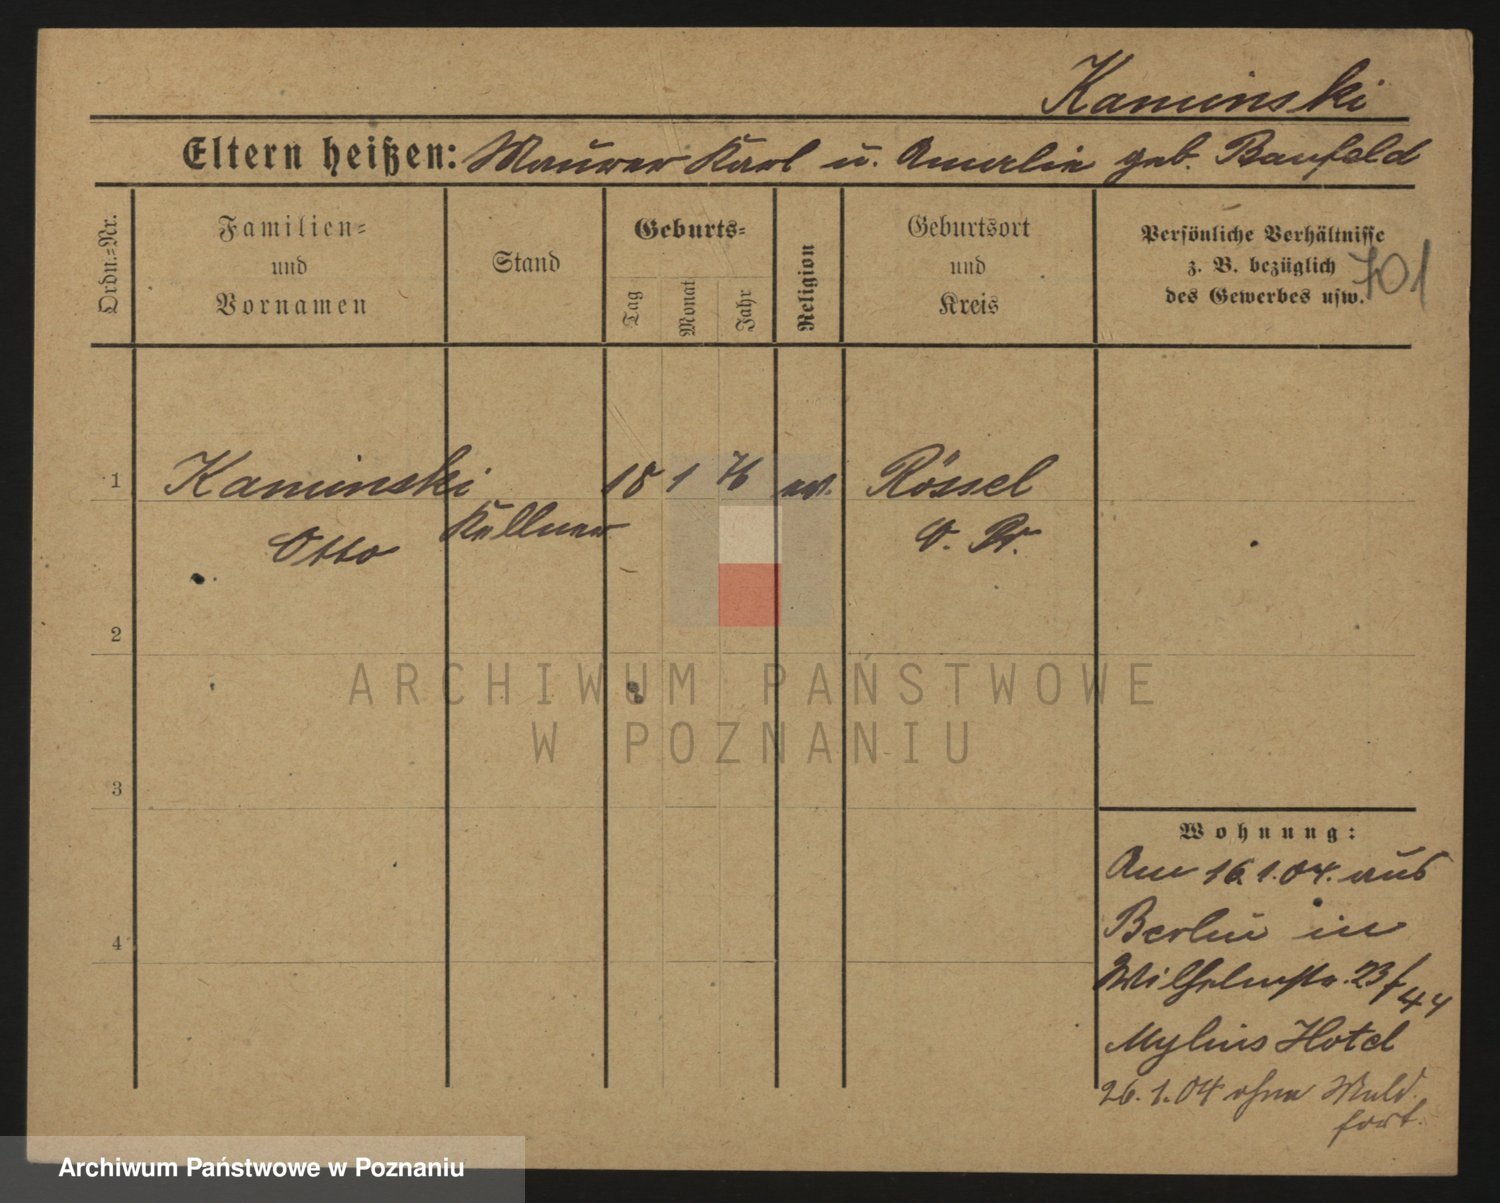 Kaminski
Eltern heißen: Maurer Karl u. Amalie geb. Banfeld
Ordn.-Nr.
Familien-
und
Vornamen
Stand
Geburts-
Tag
Monat
Jahr
Religion
Geburtsort
und
Kreis
Persönliche Verhältnisse
z. B. bezüglich
des Gewerbes usw.
701
1
Kaminski
Otto
Kellner
18 1 76 ev.
Rössel
O. Pr.
2
3
4
Wohnung:
Am 16.1.04. aus
Berlin in
Wilhelmstr. 23/44
Mylius Hotel
26.1.04 ohne Meld.
fort.
ARCHIWUM PAŃSTWOWE
W POZNANIU
Archiwum Państwowe w Poznaniu